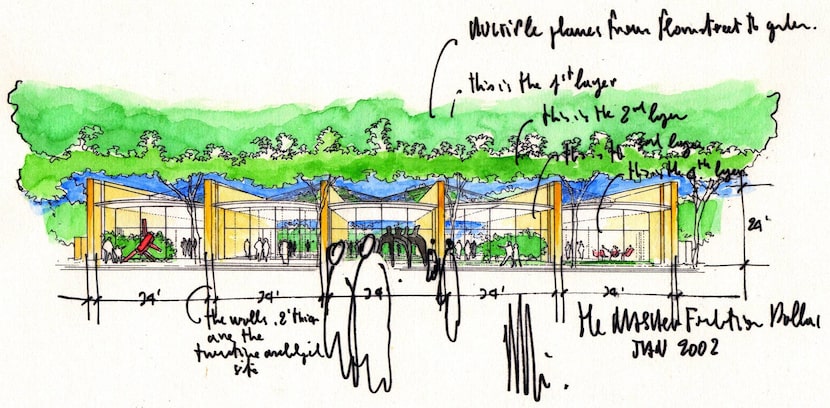 MULTIPLE planes from Flora street to garden.
this is the 1st layer
this is the 2nd layer
this is the 3rd layer
this is the 4th layer
24'
24' 24' 24 24' 24'
the walls. 2' thick
are the
site
the NASHER
Dallas
JAN 2002